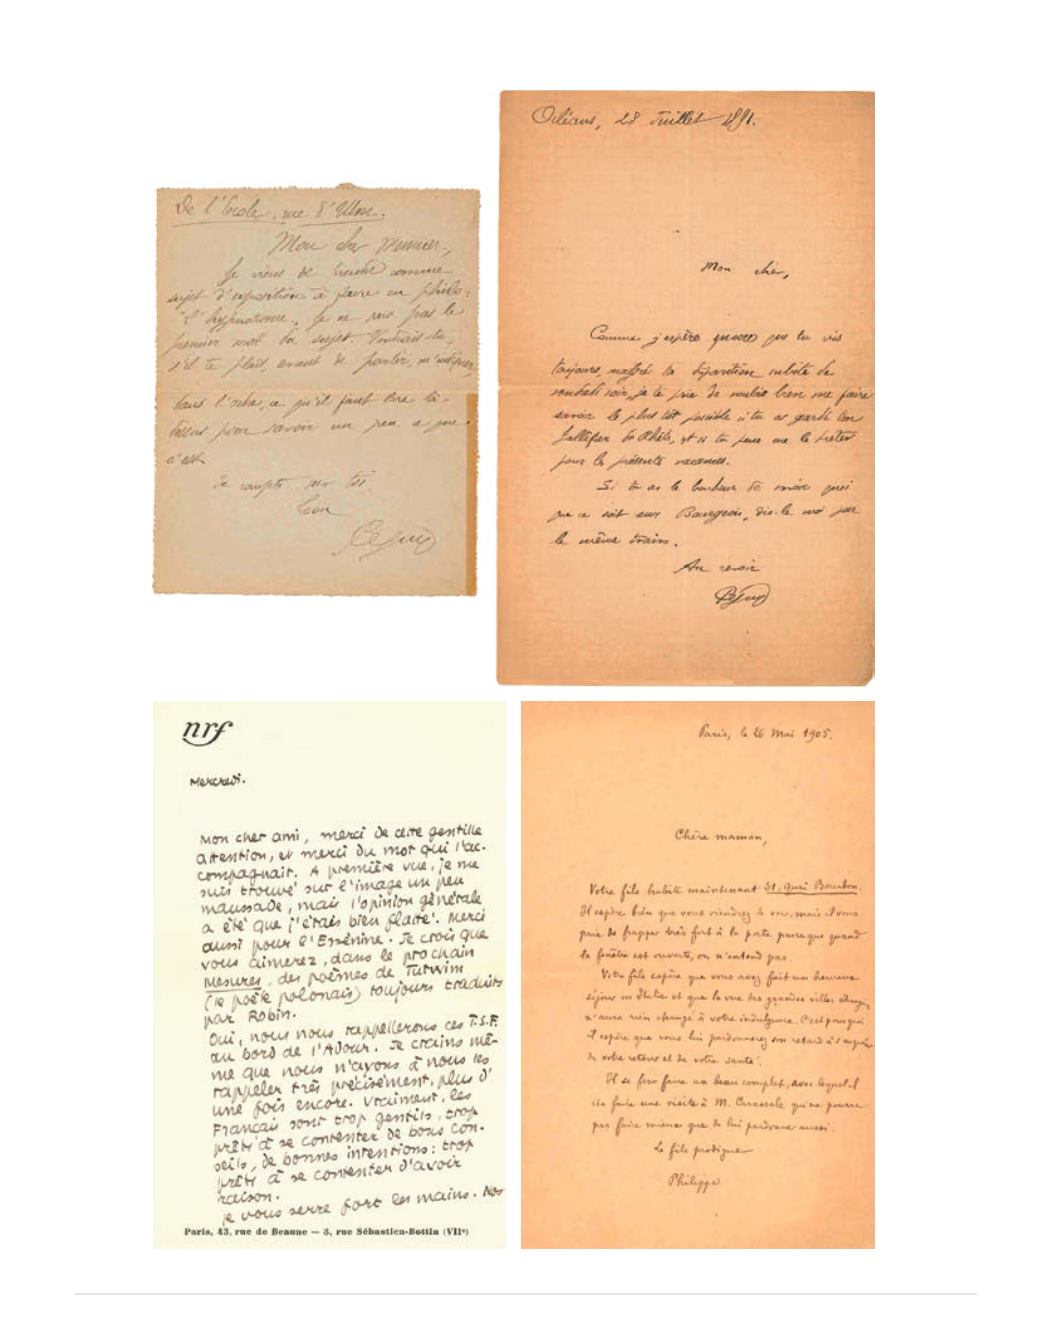 De l'École, rue d'Ulm.
Mon cher
Je viens de comme
sujet d'exposition à faire en philo:
"l'hypnotisme". Je ne sais pas le
premier mot du sujet. Voudrais-tu,
s'il te plaît, avant de partir, m'indiquer,
dans l'ordre, ce qu'il faut lire là-
dessus pour savoir un peu ce que
c'est.
Je compte sur toi.
Péguy
Orléans, 28 Juillet 1891.
Mon cher,
Comme j'espère que tu vis
toujours, malgré ta disparition subite de
vendredi soir, je te prie de vouloir bien me faire
savoir le plus tôt possible si tu as gardé ton
et si tu peux me le prêter
pour les présentes vacances.
Si tu as le bonheur de savoir quoi
que ce soit sur Bourgeois, dis-le moi par
le même train.
Au revoir
Péguy
nrf
Mercredi.
Mon cher ami, merci de cette gentille
attention, et merci du mot qui l'ac-
compagnait. A première vue, je me
suis trouvé sur l'image un peu
maussade, mais l'opinion générale
a été que j'étais bien flatté. Merci
aussi pour l'Essénine. Je crois que
vous aimerez, dans le prochain
Mesures, des poèmes de Tuwim
(le poète polonais) toujours traduits
par Robin.
Oui, nous nous rappellerons ces T.S.F.
au bord de l'Adour. Je crains mê-
me que nous n'ayons à nous les
rappeler très précisément, plus d'
une fois encore. Vraiment, les
Français sont trop gentils, trop
prêts à se contenter de bons con-
seils, de bonnes intentions: trop
prêts à se contenter d'avoir
raison.
Je vous serre fort les mains. Nos
Paris, 43, rue de Beaune — 5, rue Sébastien-Bottin (VIIe)
Paris, le 26 Mai 1905.
Chère maman,
Votre fils habite maintenant 31, quai Bourbon.
Il espère bien que vous viendrez le voir, mais il vous
prie de frapper très fort à la porte parce que quand
la fenêtre est ouverte, on n'entend pas.
Votre fils espère que vous avez fait un heureux
séjour en Italie et que la vue des grandes villes
n'aura rien changé à votre indulgence. C'est pourquoi
il espère que vous lui pardonnerez son retard à s'
de votre retour et de votre santé.
Il se fera faire un beau complet, avec lequel il
ira faire une visite à M. qui ne pourra
pas faire mieux que de lui pardonner aussi.
Le fils prodigue
Philippe